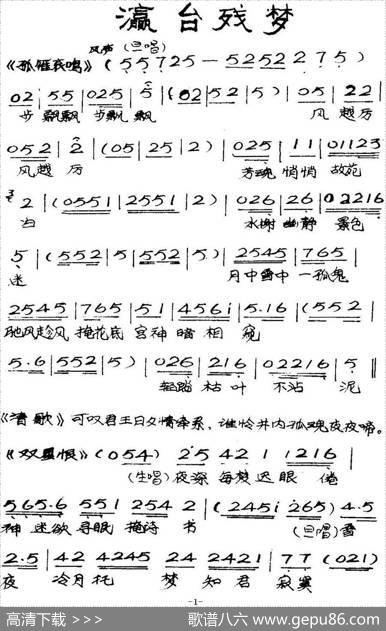 瀛台残梦
风声 (旦唱)
《孤雁哀鸣》(5 5 7 2 5 — 5 2 5 2 2 7 5)
0 2 | 5 5 | 0 2 5 | 5 | (0 2 | 5 2 | 5) | 0 5 | 2 2 |
步飘飘 步飘飘 风越厉
0 5 2 | 2 | (0 5 | 2 5 | 2) | 0 2 5 | 1 1 | 0 1 1 2 3 |
风越厉 芳魂悄悄故苑
2 | (0 5 5 1 | 2 5 5 1 | 2) | 0 2 6 | 2 6 | 0 2 2 1 6 |
水榭幽静 景色
5 | (5 5 2 | 5 | 5 5 2 | 5) | 2 5 4 5 | 7 6 5 |
迷 月中雪中一孤鬼
2 5 4 5 | 7 6 5 | 5 1 | 4 5 6 i | 5 . 1 6 | (5 5 2 |
驰风趁风 掩花底 宫神暗相窥
5 . 6 | 5 5 2 | 5) | 0 2 6 | 2 1 6 | 0 2 2 1 6 | 5 ||
轻踏 枯叶 不沾 泥
《清歌》可叹君王日夕情牵系，谁怜井内孤魂夜夜啼。
《双星恨》(0 5 4) 2 · 5 4 2 1 | 1 2 1 6 |
(生唱) 夜深 每梦迟眠 倦
5 6 5 . 6 5 5 1 2 5 4 2 · (2 4 5 i 2 6 5) 4 · 5
神迷欲寻眠 掩诗 书 (旦唱)
2 · 5 | 4 2 4 2 4 5 2 4 2 4 2 1 | 7 7 (0 2 1)
夜 冷月托 梦 知君 寂寞
- 1 -
高清下载 >>> 歌谱八六 www.gepu86.com